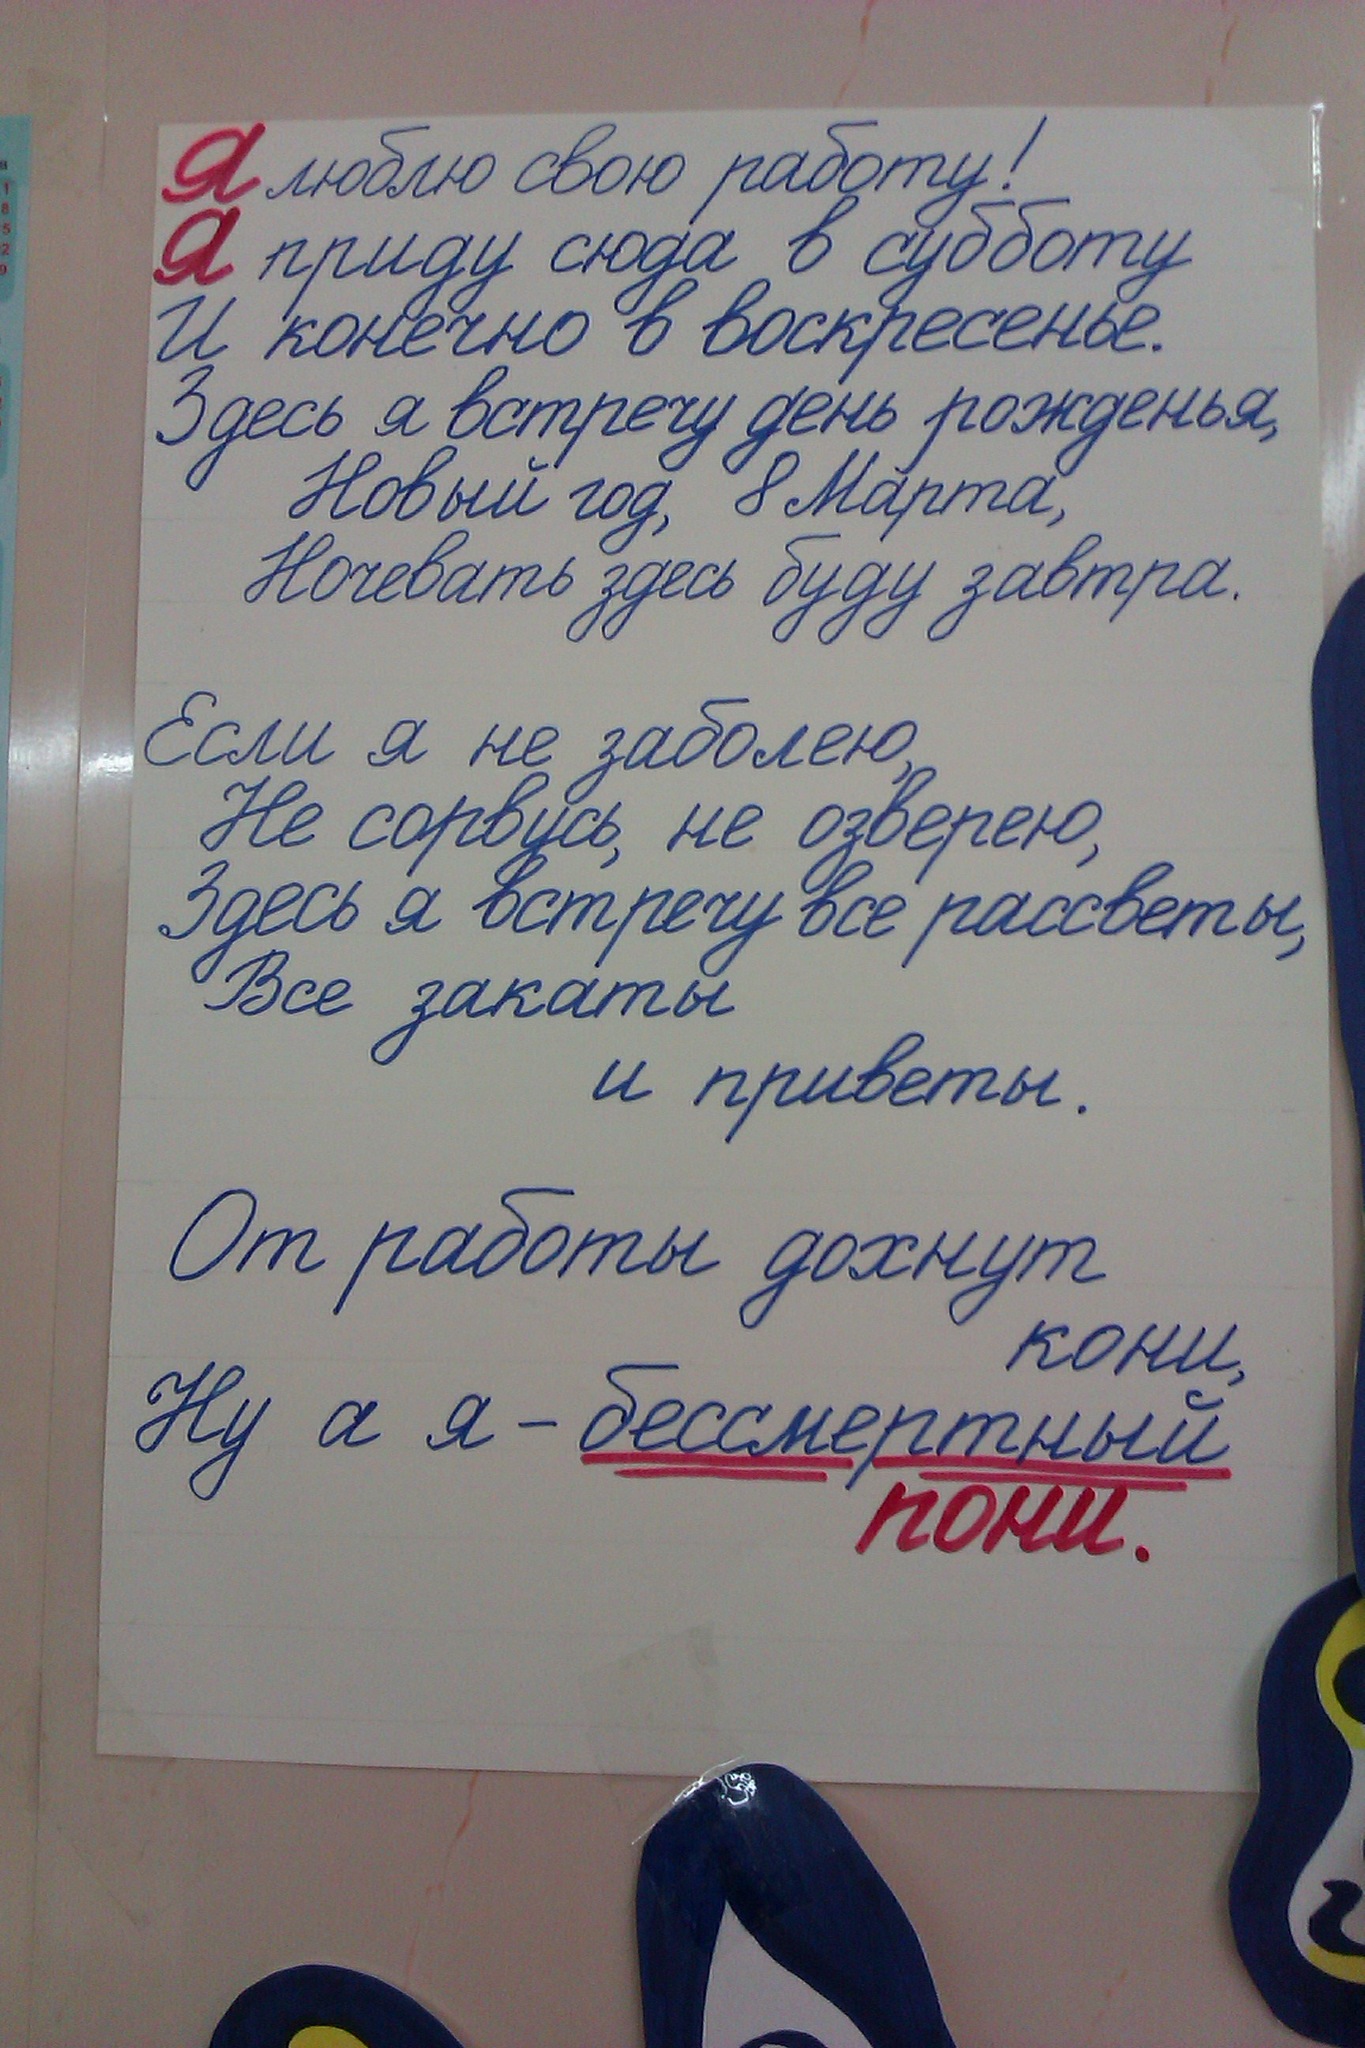 Я люблю свою работу!
Я приду сюда в субботу
И конечно в воскресенье.
Здесь я встречу день рожденья,
Новый год, 8 Марта,
Ночевать здесь буду завтра.
Если я не заболею,
Не сорвусь, не озверею,
Здесь я встречу все рассветы,
Все закаты
и приветы.
От работы дохнут
кони,
Ну а я – бессмертный
пони.